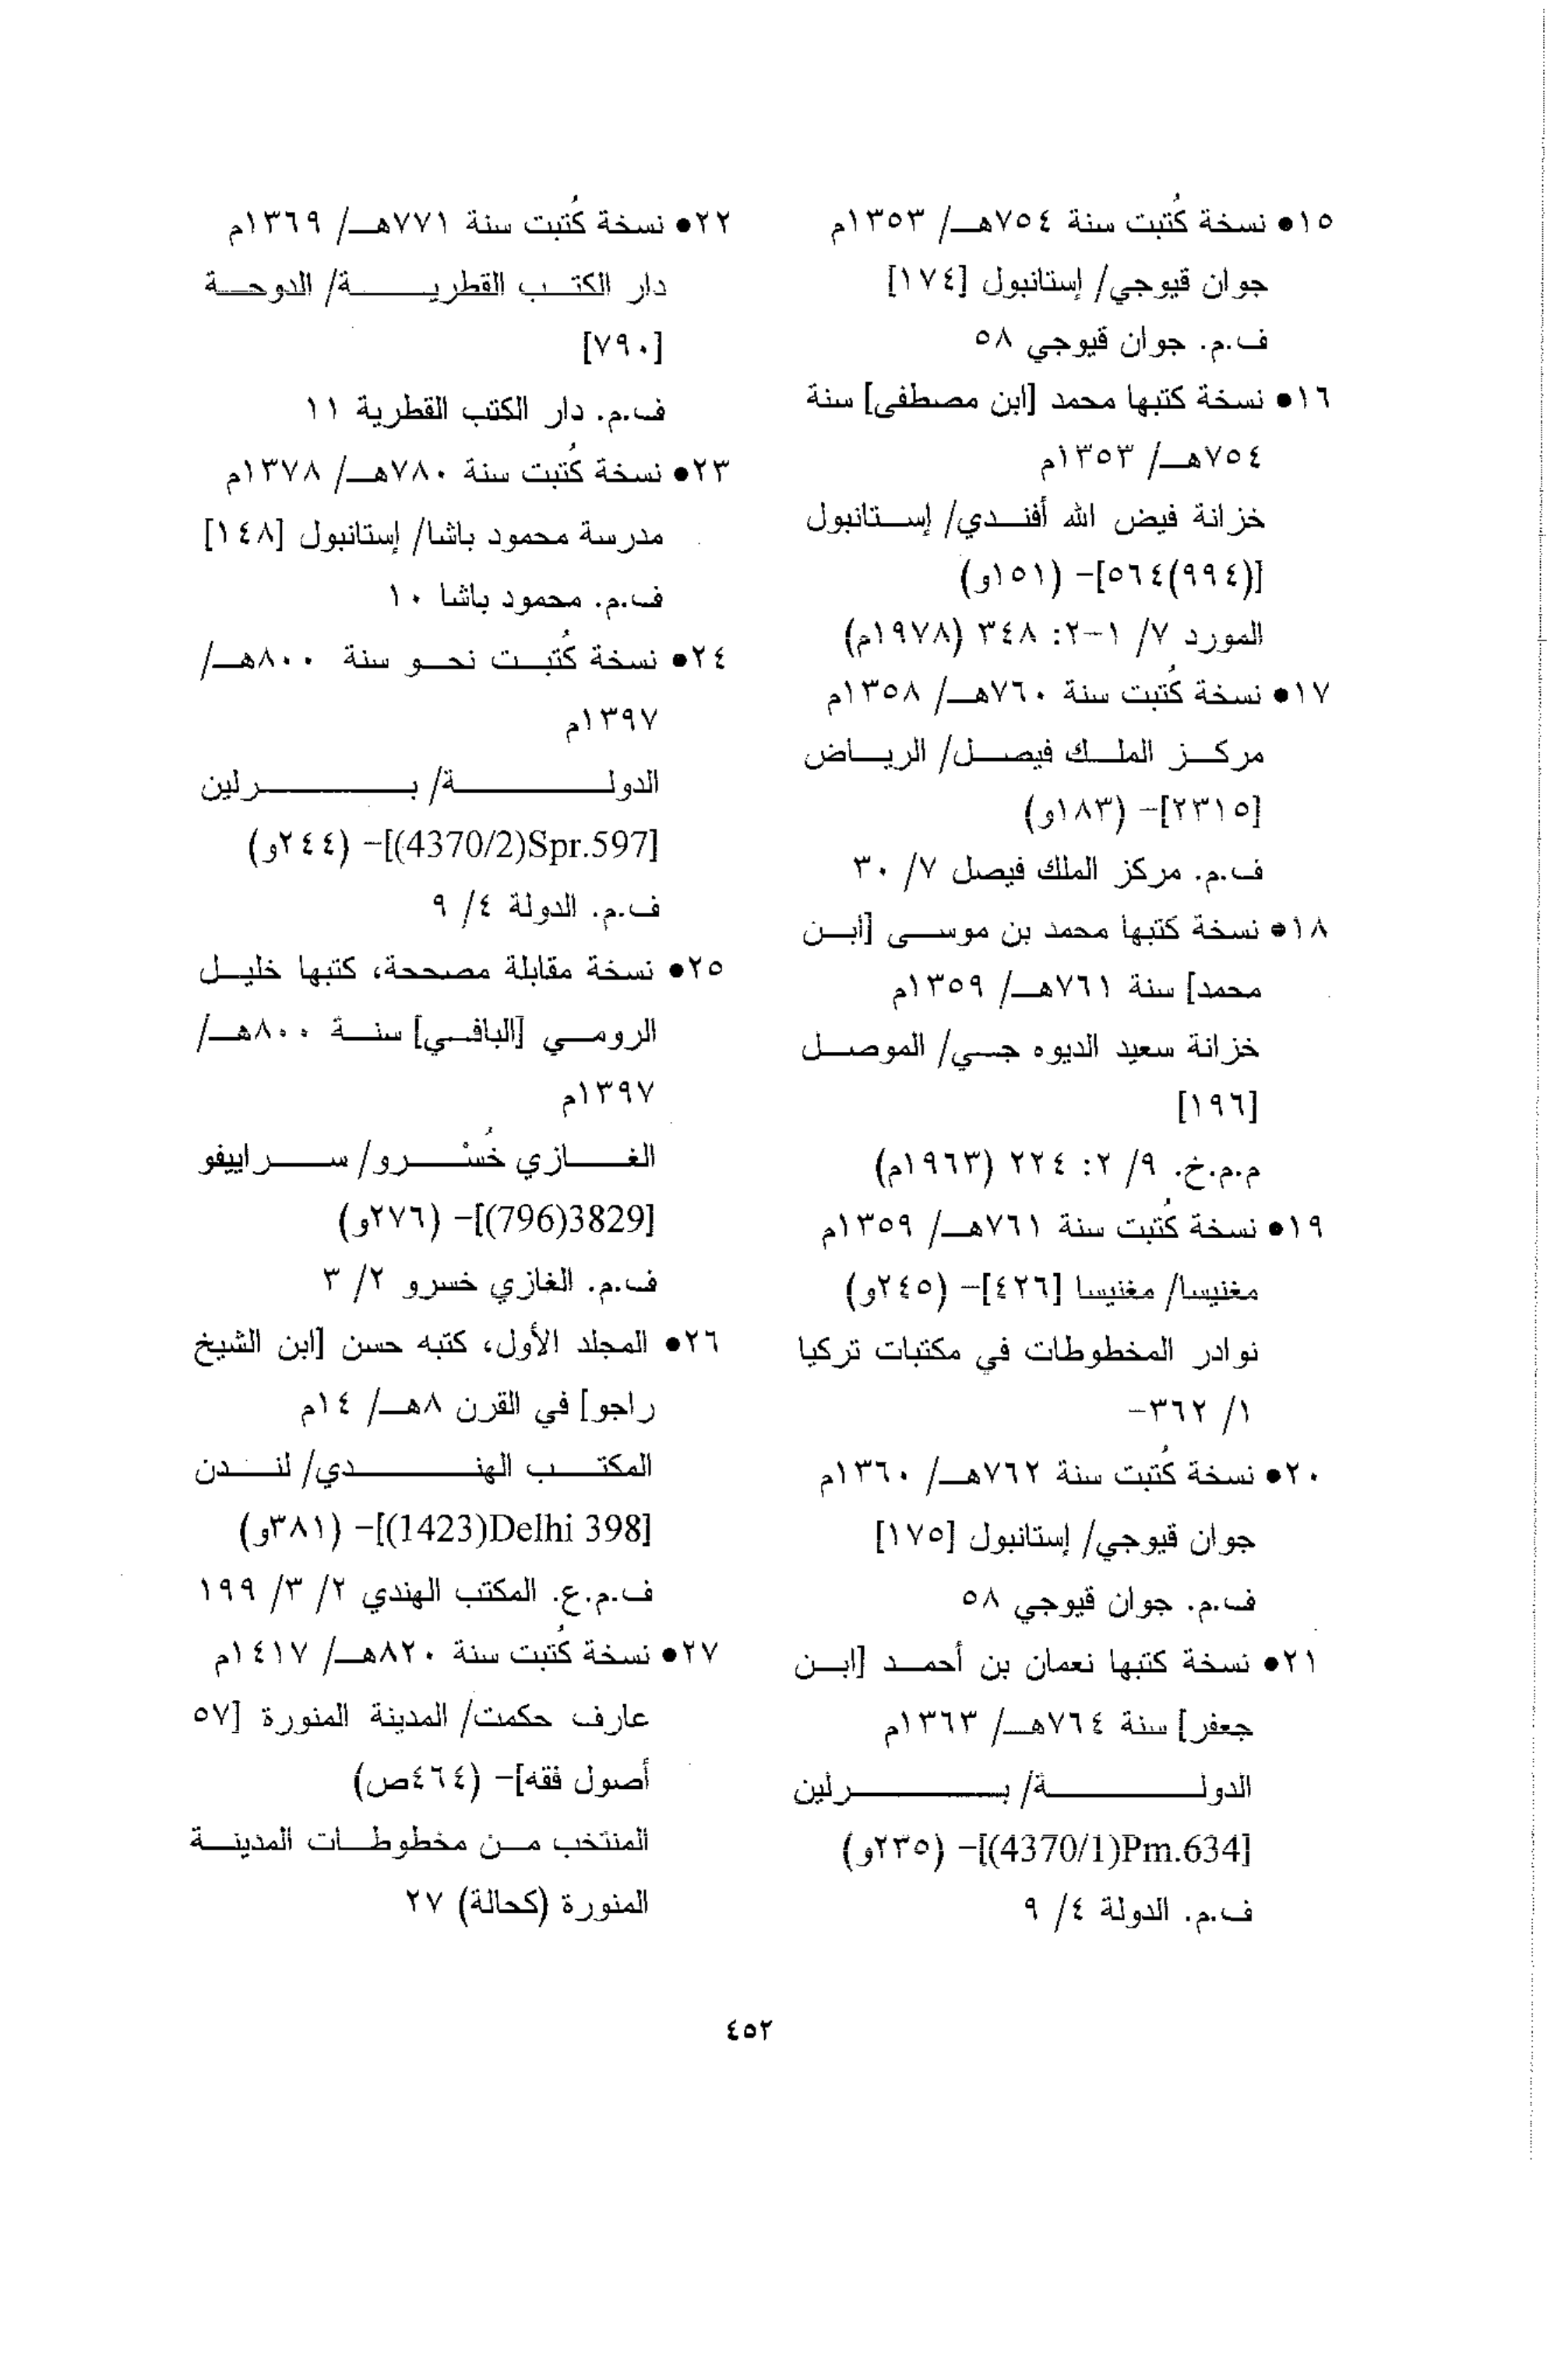 ١٥● نسخة كُتبت سنة ٧٥٤هـ/ ١٣٥٣م
جوان قيوجي/ إستانبول [١٧٤]
ف.م. جوان قيوجي ٥٨
١٦● نسخة كتبها محمد [ابن مصطفى] سنة
٧٥٤هـ/ ١٣٥٣م
خزانة فيض الله أفندي/ إستانبول
[(٩٩٤)٥٦٤]- (١٥١و)
المورد ٧/ ١-٢: ٣٤٨ (١٩٧٨م)
١٧● نسخة كُتبت سنة ٧٦٠هـ/ ١٣٥٨م
مركز الملك فيصل/ الرياض
[٢٣١٥]- (١٨٣و)
ف.م. مركز الملك فيصل ٧/ ٣٠
١٨● نسخة كتبها محمد بن موسى [ابن
محمد] سنة ٧٦١هـ/ ١٣٥٩م
خزانة سعيد الديوه جي/ الموصل
[١٩٦]
م.م.خ. ٩/ ٢: ٢٢٤ (١٩٦٣م)
١٩● نسخة كُتبت سنة ٧٦١هـ/ ١٣٥٩م
مغنيسا/ مغنيسا [٤٢٦]- (٢٤٥و)
نوادر المخطوطات في مكتبات تركيا
١/ ٣٦٢-
٢٠● نسخة كُتبت سنة ٧٦٢هـ/ ١٣٦٠م
جوان قيوجي/ إستانبول [١٧٥]
ف.م. جوان قيوجي ٥٨
٢١● نسخة كتبها نعمان بن أحمد [ابن
جعفر] سنة ٧٦٤هـ/ ١٣٦٣م
الدولة/ برلين
[(4370/1)Pm.634]- (٢٣٥و)
ف.م. الدولة ٤/ ٩
٢٢● نسخة كُتبت سنة ٧٧١هـ/ ١٣٦٩م
دار الكتب القطرية/ الدوحة
[٧٩٠]
ف.م. دار الكتب القطرية ١١
٢٣● نسخة كُتبت سنة ٧٨٠هـ/ ١٣٧٨م
مدرسة محمود باشا/ إستانبول [١٤٨]
ف.م. محمود باشا ١٠
٢٤● نسخة كُتبت نحو سنة ٨٠٠هـ/
١٣٩٧م
الدولة/ برلين
[(4370/2)Spr.597]- (٢٤٤و)
ف.م. الدولة ٤/ ٩
٢٥● نسخة مقابلة مصححة، كتبها خليل
الرومي [البافي] سنة ٨٠٠هـ/
١٣٩٧م
الغازي خُسْرو/ سراييفو
[(796)3829]- (٢٧٦و)
ف.م. الغازي خسرو ٢/ ٣
٢٦● المجلد الأول، كتبه حسن [ابن الشيخ
راجو] في القرن ٨هـ/ ١٤م
المكتب الهندي/ لندن
[(1423)Delhi 398]- (٣٨١و)
ف.م.ع. المكتب الهندي ٢/ ٣/ ١٩٩
٢٧● نسخة كُتبت سنة ٨٢٠هـ/ ١٤١٧م
عارف حكمت/ المدينة المنورة [٥٧
أصول فقه]- (٤٦٤ص)
المنتخب من مخطوطات المدينة
المنورة (كحالة) ٢٧
٤٥٢